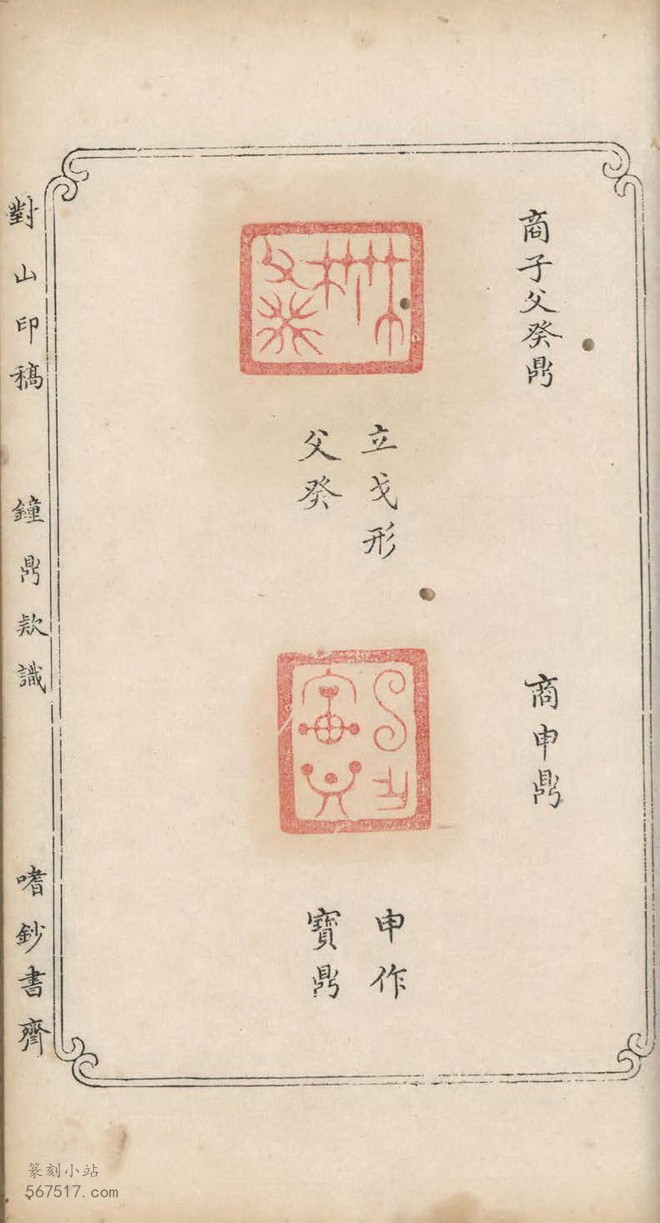 商子父癸鼎
立戈形
父癸
商申鼎
申作
寶鼎
對山印稿
鐘鼎款識
嗜鈔書齋
篆刻小站
567517.com